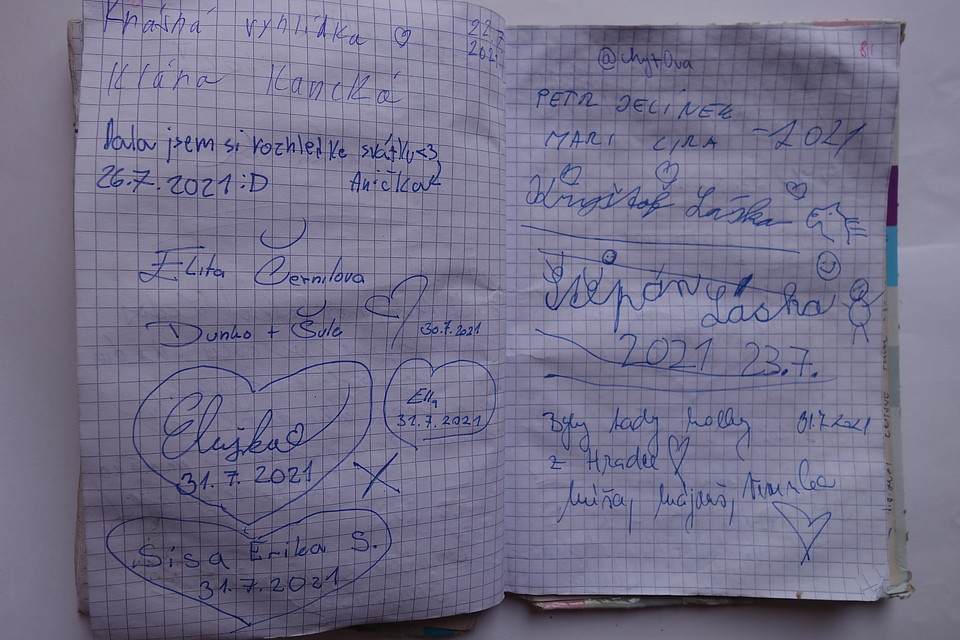 Krásná vyhlídka
22.7.
2021
Klára
Dala jsem si rozhledke svátku <3
26.7.2021 :D Anička
Elita Černilova
Dunko + Šula
30.7.2021
Eluška
31.7.2021
Ella
31.7.2021
Sisa Erika S.
31.7.2021
PETR JELÍNEK
MARI - 2021
Kryštof Láska
Štěpán Láska
2021 23.7.
Byly tady holky 31.7.2021
z Hradce
Míša,